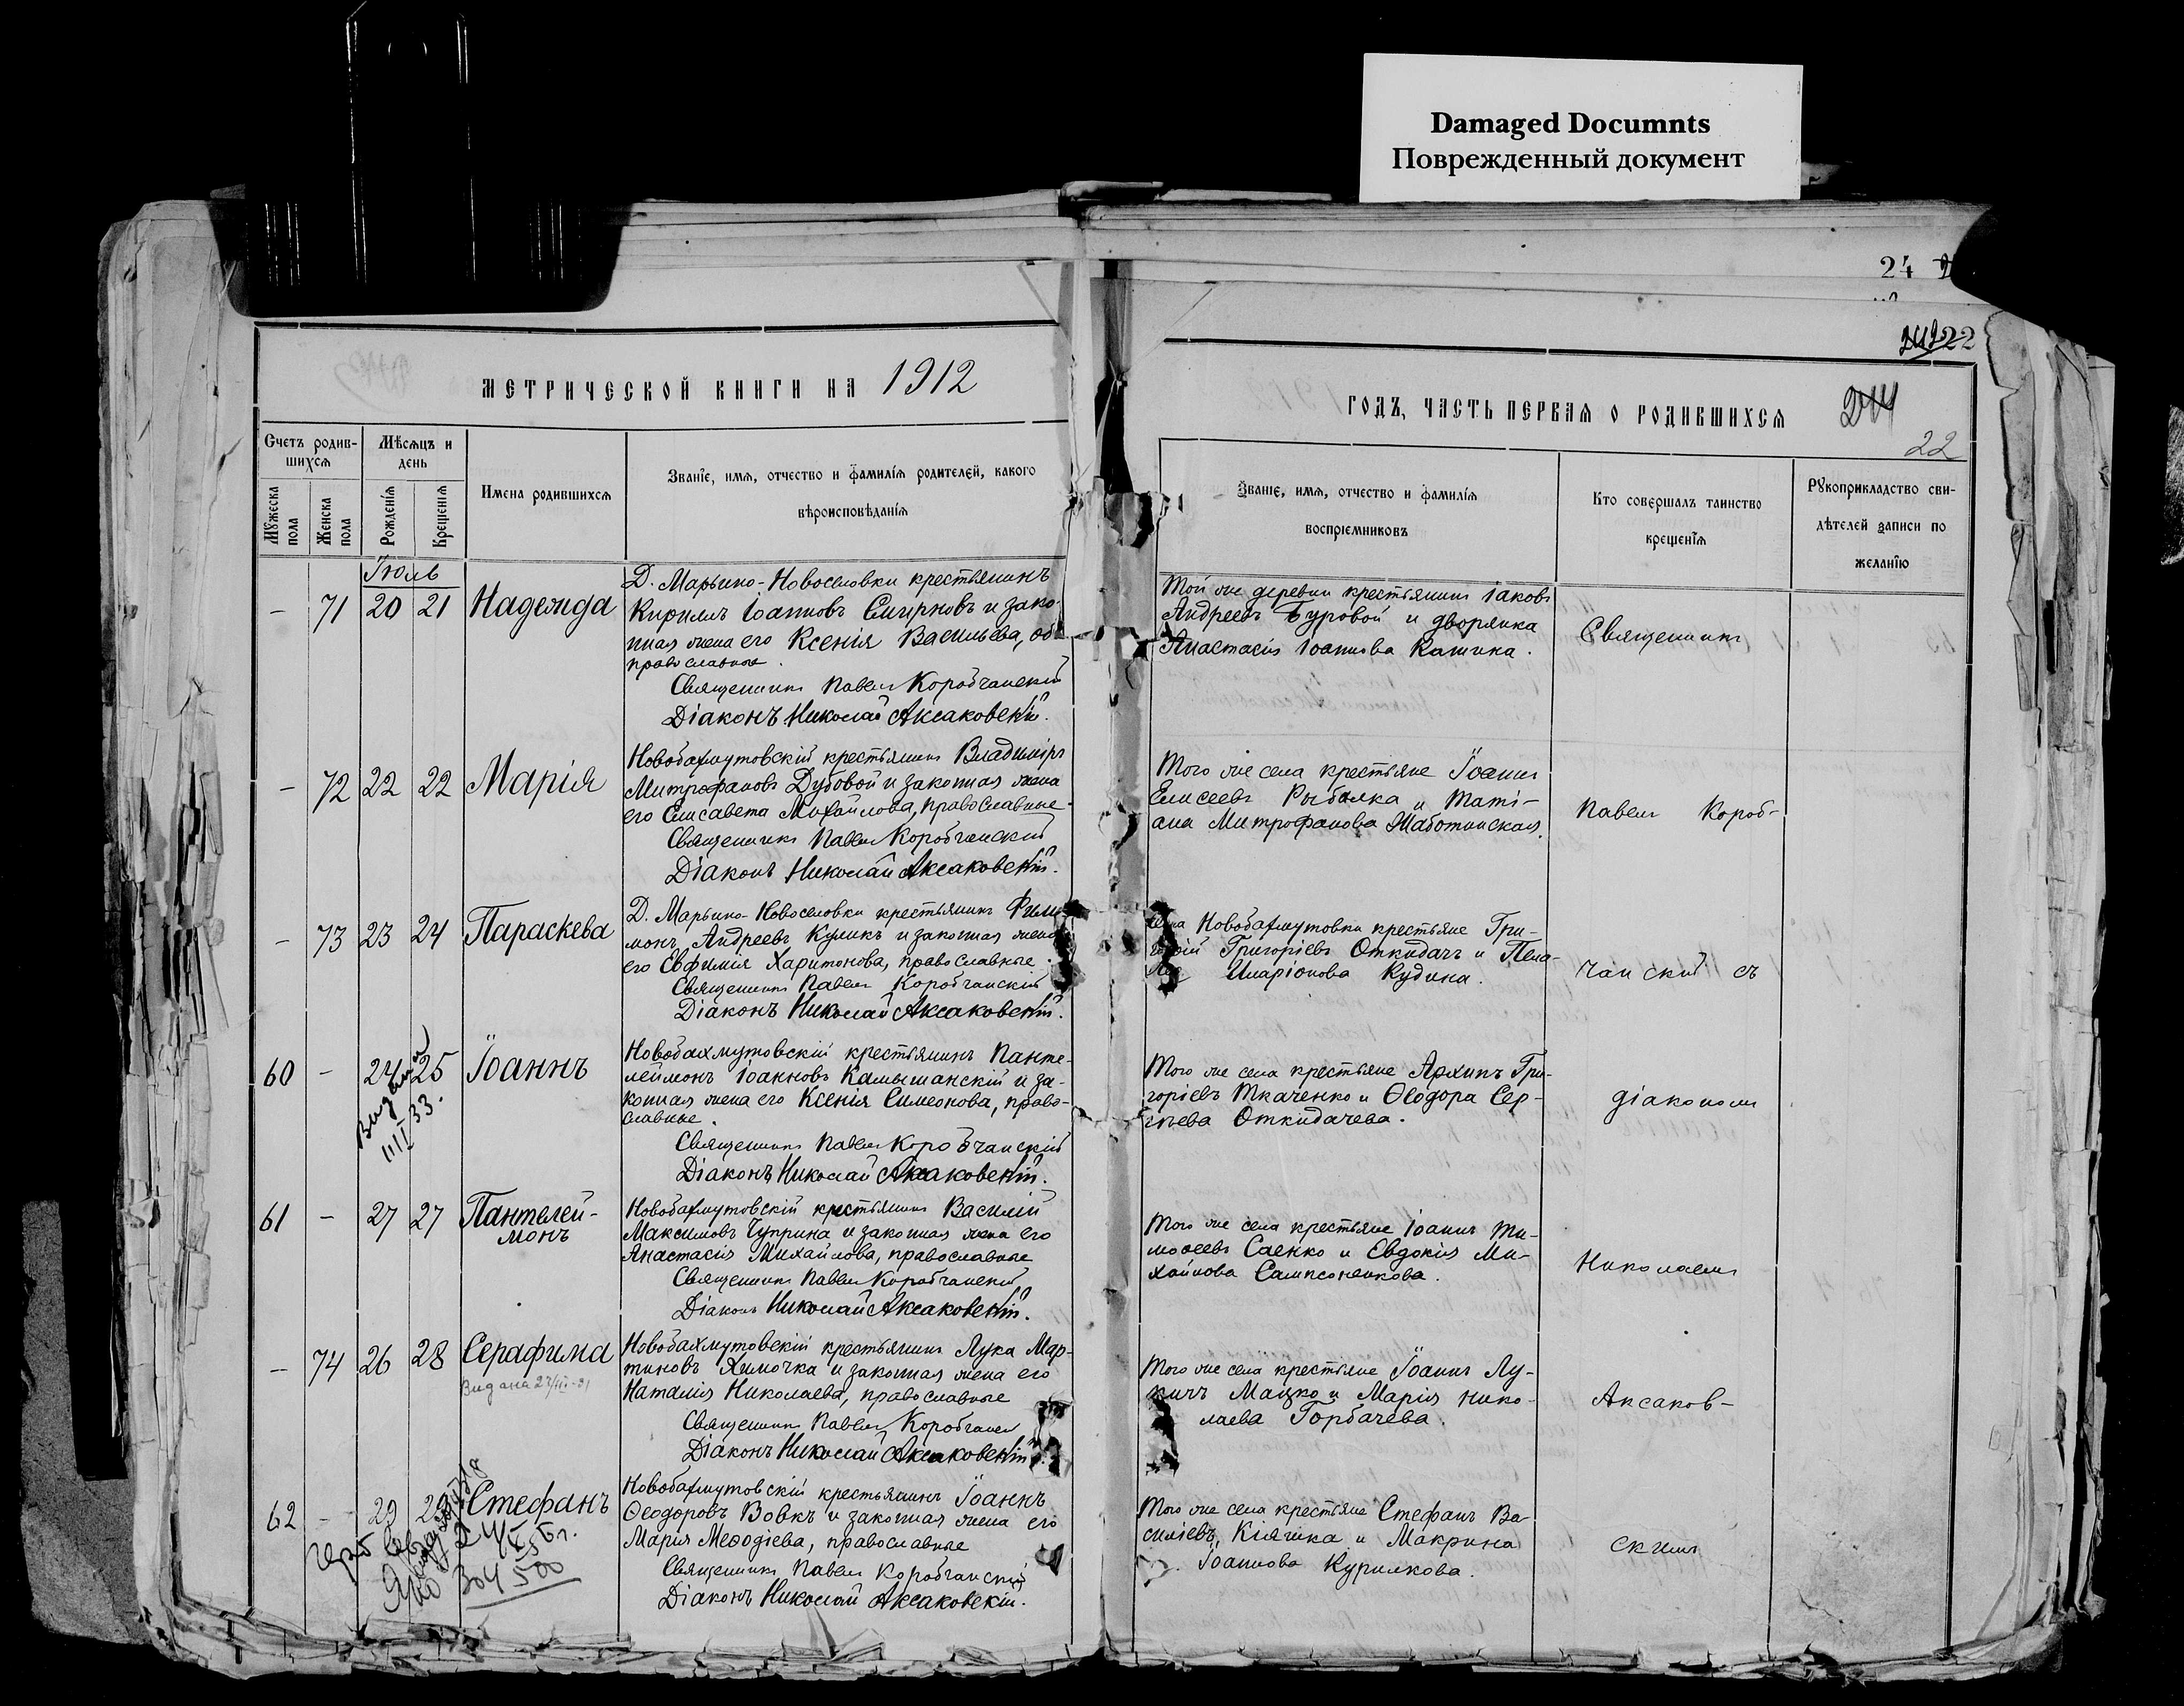 Damaged Documnts
Поврежденный документ
24
22
МЕТРИЧЕСКОЙ КНИГИ НА 1912
ГОДЪ, ЧАСТЬ ПЕРВАЯ О РОДИВШИХСЯ
244
22
Счетъ родив-
шихся
Мѣсяцъ и
день
Мужеска
пола
Женска
пола
Рожденія
Крещенія
Имена родившихся
Званіе, имя, отчество и фамилія родителей, какого
вѣроисповѣданія
Званіе, имя, отчество и фамилія
воспріемниковъ
Кто совершалъ таинство
крещенія
Рукоприкладство сви-
дѣтелей записи по
желанію
Іюль
– 71 20 21 Надежда
Д. Марьино-Новоселовки крестьянинъ
Кириллъ Іоанновъ Смирновъ и зако-
нная жена его Ксенія Васильева, оба
православные.
Священникъ Павелъ Коробчанскій
Діаконъ Николай Аксаковскій.
Той же деревни крестьянинъ Іаковъ
Андреевъ Буровой и дворянка
Анастасія Іоаннова
Священникъ
– 72 22 22 Марія
Новобахмутовскій крестьянинъ Владиміръ
Митрофановъ Дубовой и законная жена
его Елисавета Михайлова, православные.
Священникъ Павелъ Коробчанскій
Діаконъ Николай Аксаковскій.
Того же села крестьяне Іоаннъ
Елисеевъ Рыбалка и Таті-
ана Митрофанова Жаботинская.
Павелъ Короб-
– 73 23 24 Параскева
Д. Марьино-Новоселовки крестьянинъ Фили-
монъ Андреевъ Куликъ и законная жена
его Евфимія Харитонова, православные.
Священникъ Павелъ Коробчанскій
Діаконъ Николай Аксаковскій.
села Новобахмутовки крестьяне Гри-
горій Григоріевъ Откидачъ и Пела-
гія Иларіонова Кудина.
чанскій съ
60 – 24 25 Іоаннъ
Видана
33.
Новобахмутовскій крестьянинъ Панте-
леймонъ Іоанновъ Камышанскій и за-
конная жена его Ксенія Симеонова, право-
славные.
Священникъ Павелъ Коробчанскій
Діаконъ Николай Аксаковскій.
Того же села крестьяне Архипъ Гри-
горіевъ Ткаченко и Ѳеодора Сер-
гіева Откидачева.
діакономъ
61 – 27 27 Пантелей-
монъ
Новобахмутовскій крестьянинъ Василій
Максимовъ Чуприна и законная жена его
Анастасія Михайлова, православные
Священникъ Павелъ Коробчанскій
Діаконъ Николай Аксаковскій.
Того же села крестьяне Іоаннъ Ти-
моѳеевъ Саенко и Евдокія Ми-
хайлова Сампсоненкова.
Николаемъ
– 74 26 28 Серафима
Видана
Новобахмутовскій крестьянинъ Лука Мар-
тиновъ Химочка и законная жена его
Наталія Николаева, православные
Священникъ Павелъ Коробчанскій
Діаконъ Николай Аксаковскій.
Того же села крестьяне Іоаннъ Лу-
кичъ Мацко и Марія Нико-
лаева Горбачева.
Аксаков-
62 – 29 29 Стефанъ
Новобахмутовскій крестьянинъ Іоаннъ
Ѳеодоровъ Вовкъ и законная жена его
Марія Меѳодіева, православные
Священникъ Павелъ Коробчанскій
Діаконъ Николай Аксаковскій.
Того же села крестьяне Стефанъ Ва-
силіевъ Кіяшка и Макрина
Іоаннова Курилкова.
скимъ